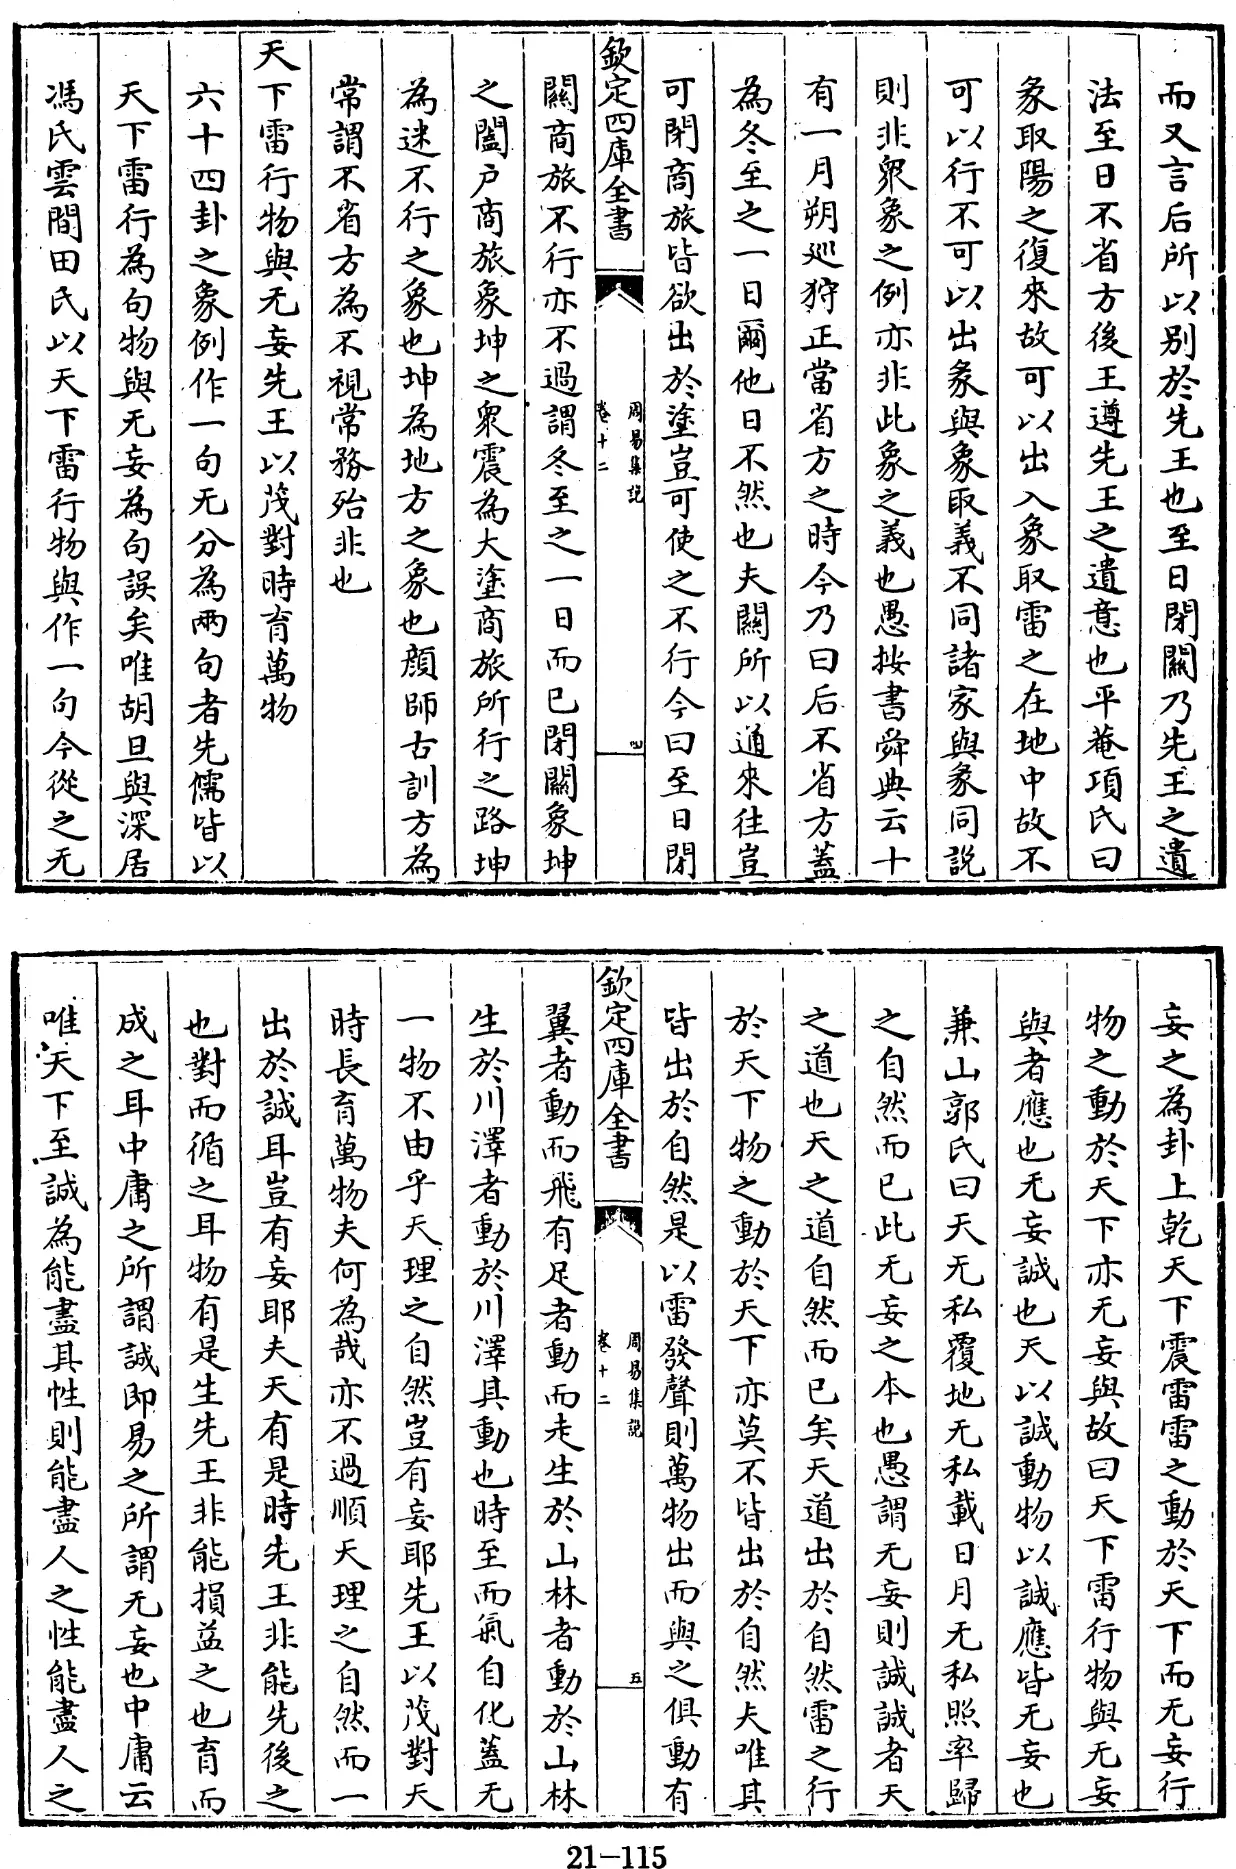 而又言后所以别於先王也至日閉關乃先王之遺
法至日不省方後王遵先王之遺意也平菴項氏曰
彖取陽之復來故可以出入象取雷之在地中故不
可以行不可以出彖與象取義不同諸家與彖同説
則非衆象之例亦非此象之義也愚按書舜典云十
有一月朔巡狩正當省方之時今乃曰后不省方蓋
為冬至之一日爾他日不然也夫關所以通來往豈
可閉商旅皆欲出於塗豈可使之不行今曰至日閉
欽定四庫全書
周易集説
卷十二
四
關商旅不行亦不過謂冬至之一日而已閉關象坤
之闔户商旅象坤之衆震為大塗商旅所行之路坤
為迷不行之象也坤為地方之象也顔師古訓方為
常謂不省方為不視常務殆非也
天下雷行物與无妄先王以茂對時育萬物
六十四卦之象例作一句无分為兩句者先儒皆以
天下雷行為句物與无妄為句誤矣唯胡旦與深居
馮氏雲間田氏以天下雷行物與作一句今從之无
妄之為卦上乾天下震雷雷之動於天下而无妄行
物之動於天下亦无妄與故曰天下雷行物與无妄
與者應也无妄誠也天以誠動物以誠應皆无妄也
兼山郭氏曰天无私覆地无私載日月无私照率歸
之自然而已此无妄之本也愚謂无妄則誠誠者天
之道也天之道自然而已矣天道出於自然雷之行
於天下物之動於天下亦莫不皆出於自然夫唯其
皆出於自然是以雷發聲則萬物出而與之俱動有
欽定四庫全書
周易集説
卷十二
五
翼者動而飛有足者動而走生於山林者動於山林
生於川澤者動於川澤具動也時至而氣自化蓋无
一物不由乎天理之自然豈有妄耶先王以茂對天
時長育萬物夫何為哉亦不過順天理之自然而一
出於誠耳豈有妄耶夫天有是時先王非能先後之
也對而循之耳物有是生先王非能損益之也育而
成之耳中庸之所謂誠即易之所謂无妄也中庸云
唯天下至誠為能盡其性則能盡人之性能盡人之
21-115